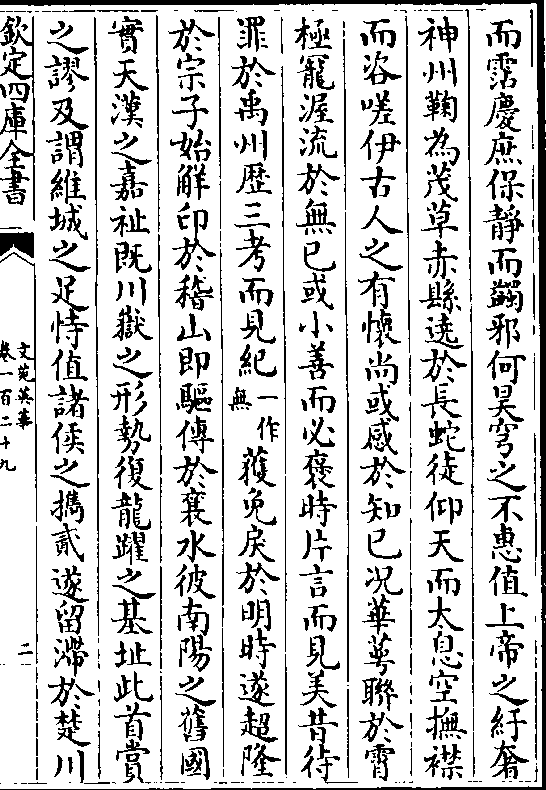 而霑慶庶保靜而蠲邪何昊穹之不惠值上帝之紆奢
神州鞠為茂草赤縣遶於長蛇徒仰天而太息空撫襟
而咨嗟伊古人之有懷尚或感於知已况華萼聯於霄
極寵渥流於無已或小善而必褒時片言而見美昔待
罪於禹州歴三考而見紀一作無獲免戾於明時遂超隆
於宗子始解印於稽山即驅傳於襄水彼南陽之舊國
實天漢之嘉祉既川嶽之形勢復龍躍之基址此首賞
之謬及謂維城之足恃值諸侯之攜貳遂留滯於楚川
欽定四庫全書
文苑英華
卷一百二十九
二